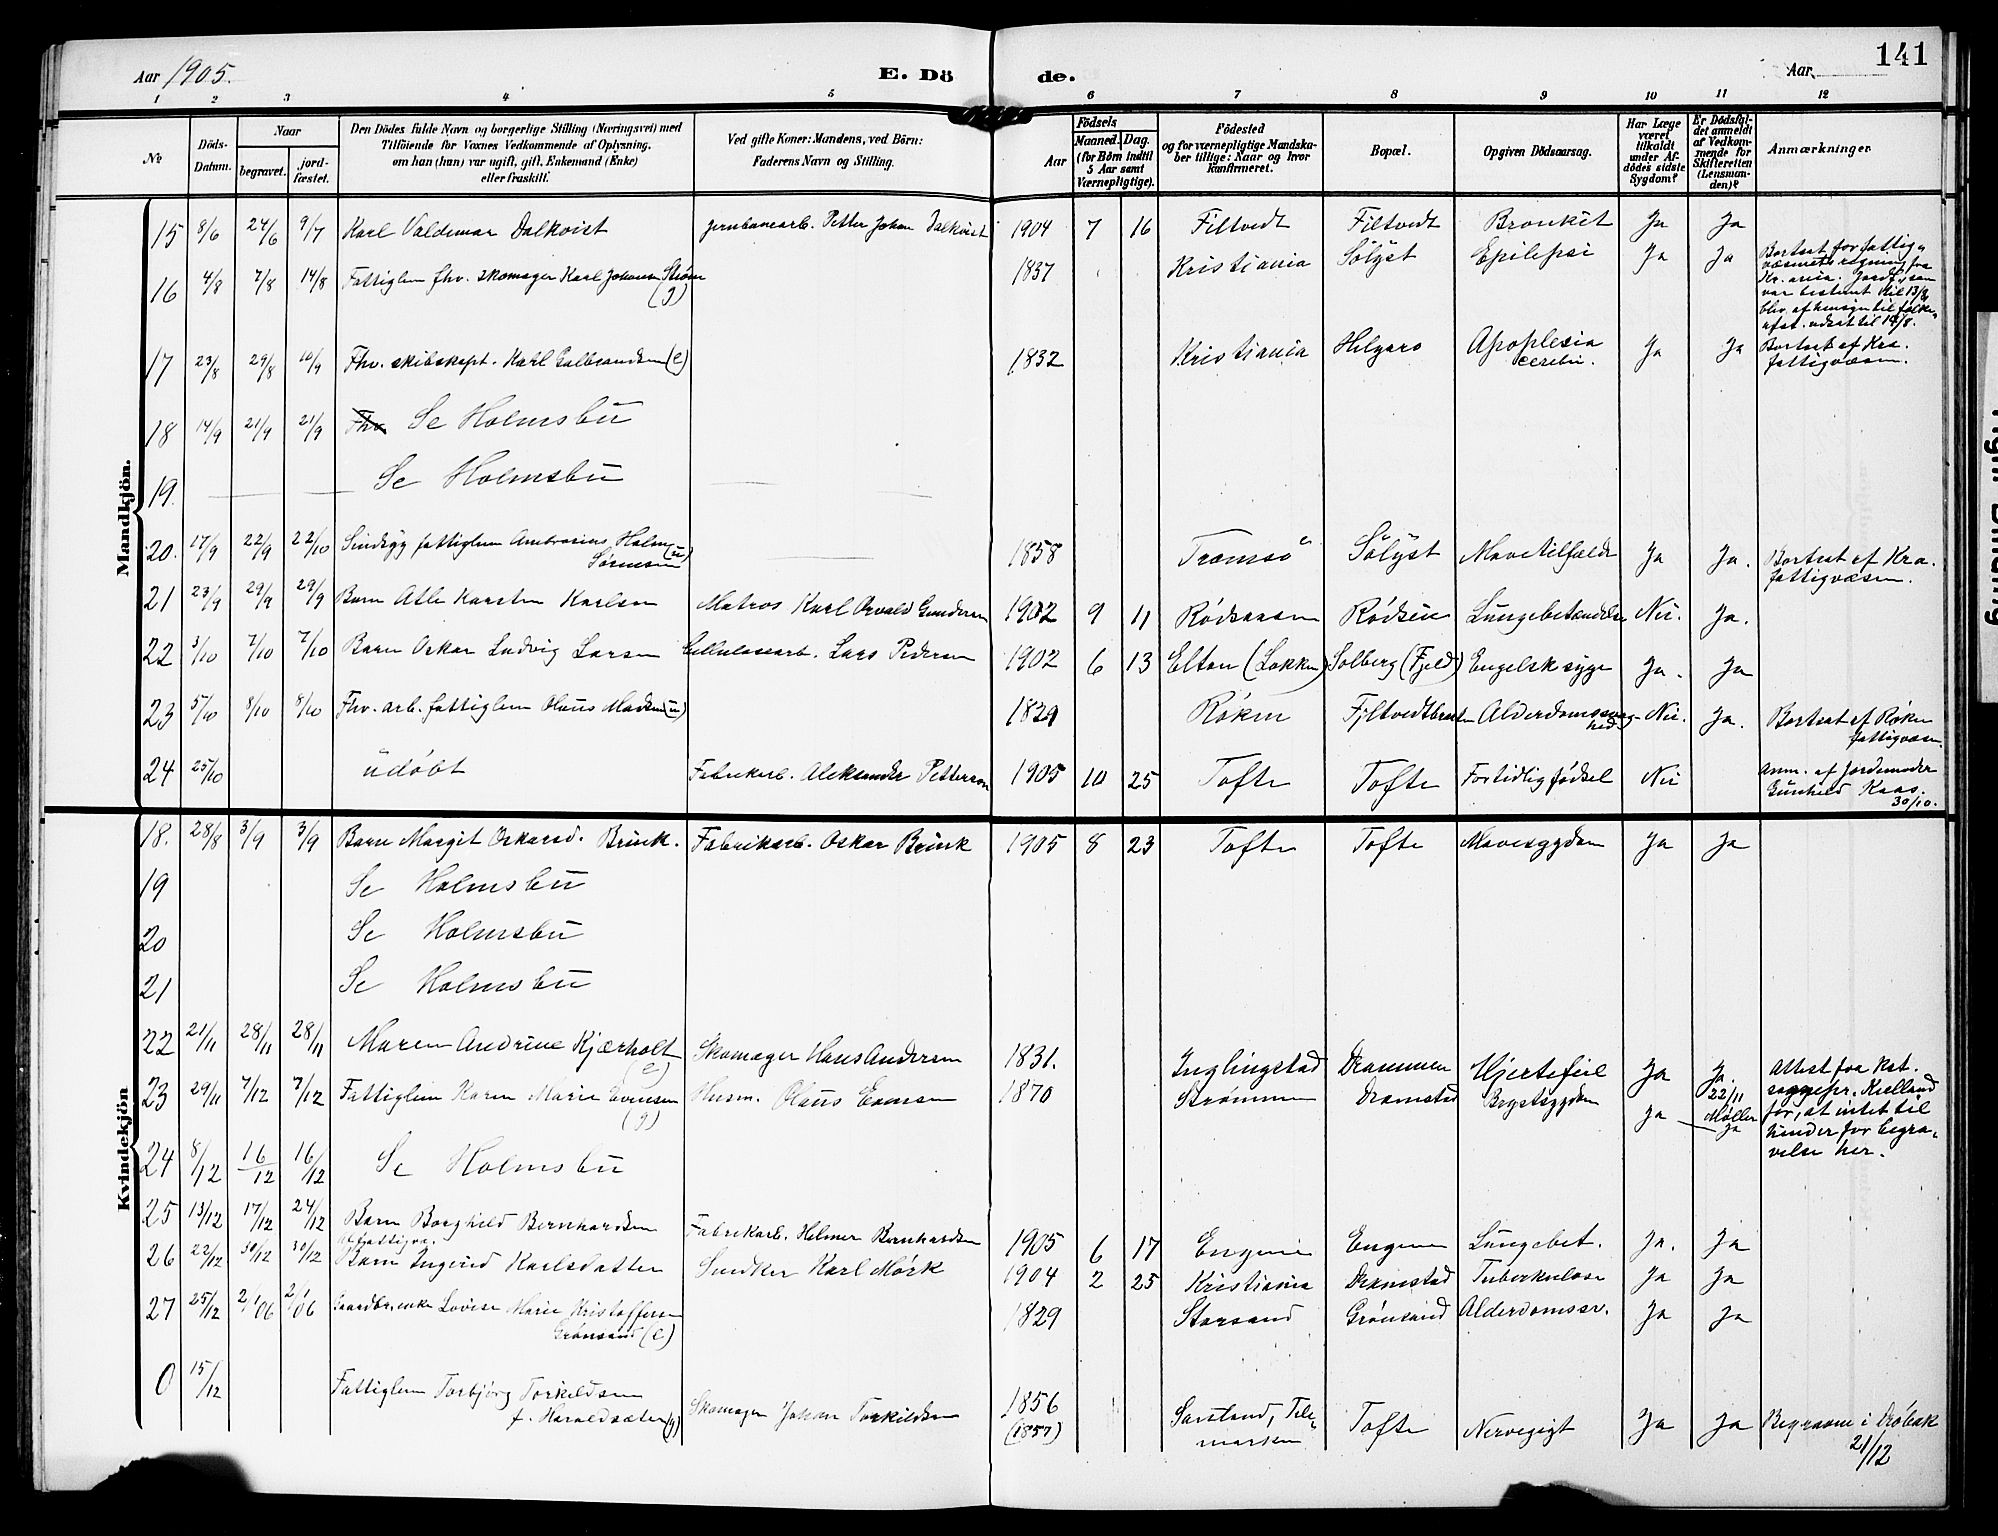 141
Aar 1905. E. Dö de. Aar
1 2 3 4 5 6 7 8 9 10 11 12
No Döds-Datum. Naar begravet. jordfæstet.
Den Dödes fulde Navn og borgerlige Stilling (Næringsvei) med
Tilföiende for Voxnes Vedkommende af Oplysning,
om han (hun) var ugift, gift, Enkemand (Enke)
eller fraskilt.
Ved gifte Koner: Mandens, ved Börn:
Faderens Navn og Stilling.
Födsels
Aar Maaned. Dag.
(for Börn indtil
5 Aar samt
Værnepligtige).
Födested
og for værnepligtige Mandska-
ber tillige: Naar og hvor
konfirmeret.
Bopæl.
Opgiven Dödsaarsag.
Har Læge
været
tilkaldt
under Af-
dödes sidste
Sygdom?
Er Dödsfal-
det anmeldt
af Vedkom-
mende for
Skifteretten
(Lensman-
den)?
Anmærkninger
Mandkjön.
15 8/6 24/6 9/7 Karl Valdemar Dalkvist jernbanearb. Petter Johan Dalkvist 1904 7 16 Filtvedt Filtvedt Bronkit Ja Ja
16 4/8 7/8 14/8 Fattiglem fhv. skomager Karl Johansen Strøm (g) 1837 Kristiania Sølyst Epilepsi Ja Ja
Bortsat for fattig-
væsenets regning fra
Kr.ania. Jordf., som
var bestemt til 13/8,
blev af hensyn til folke-
afst. udsat til 14/8.
17 23/8 29/8 10/9 Fhv. skibskapt. Karl Gulbrandsen (e) 1832 Kristiania Helgero Apoplexia cerebri. Ja Ja Bortsat af Kra.
fattigvæsen.
18 14/9 21/9 21/9 Fhv. Se Holmsbu
19. Se Holmsbu
20. 17/9 22/9 22/10 Sindssyg fattiglem Ambrosius Holm (u)
Sørensen 1858 Tromsø Sølyst Mavetilfælde Ja Ja. Bortsat af Kra.
fattigvæsen.
21 23/9 29/9 29/9 Barn Atle Karsten Karlsen Matros Karl Osvald Gundersen 1902 9 11 Rødsaasen Rødsun Lungebetændelse Nei. Ja.
22 3/10 7/10 7/10 Barn Oskar Ludvig Larsen Cellulosearb. Lars Pedersen 1902 6 13 Elton (Løkken) Solberg (Fjeld) Engelsk syge Ja. Ja
23 5/10 8/10 8/10 Fhv. arb. fattiglem Olaus Madsen (u) 1829 Røken Filtvedtbraaten Alderdomssvaghed Nei. Ja. Bortsat af Røken
fattigvæsen.
24 25/10 udøbt Fabrikarb. Aleksander Petterson 1905 10 25 Tofte Tofte Fortidlig fødsel Nei Anm. af Jordemoder
Gunhild Kaas.
30/10.
Kvindekjön
18. 28/8 3/9 3/9 Barn Margit Oskarsd. Brink. Fabrikarb. Oskar Brink 1905 8 23 Tofte Tofte Mavesygdom Ja Ja
19 Se Holmsbu
20 Se Holmsbu
21 Se Holmsbu
22 21/11 28/11 28/11 Maren Andrine Kjærholt (e) Skomager Hans Andersen 1831. Inglingstad Drammen Hjertefeil Ja Ja.
22/11
Møller
23 29/11 7/12 7/12 Fattiglem Karen Marie Evensen (g) Husm. Olaus Evensen 1870 Strømmen Dramstad Brystsygdom Ja Ja
Attest fra kst.
sognepr. Kielland
for, at intet til
hinder for begra-
velse her.
24 8/12 16/12 16/12 Se Holmsbu
25 13/12 17/12 24/12 Barn Borghild Bernhardsen Fabrikarb. Helmer Bernhardsen 1905 6 17 Engene Engene Lungebet. Ja. Ja
26 22/12 30/12 30/12 Barn Ingerid Karlsdatter Snedker Karl Mørk 1904 2 25 Kristiania Dramstad Tuberkulose Ja Ja
27 25/12 2/1 06 2/1 06 Gaardbr.enke Lovise Marie Kristoffersen
Grønsand (e) 1829 Storsand Grønsand Alderdomssv. Ja Ja
0 15/12 Fattiglem Torbjørg Torkildsen
f. Haraldsæter (g) Skomager Johan Torkildsen 1856
(1857) Sauland, Tele-
marken Tofte Nervegigt Ja Ja Begraven i Drøbak
21/12